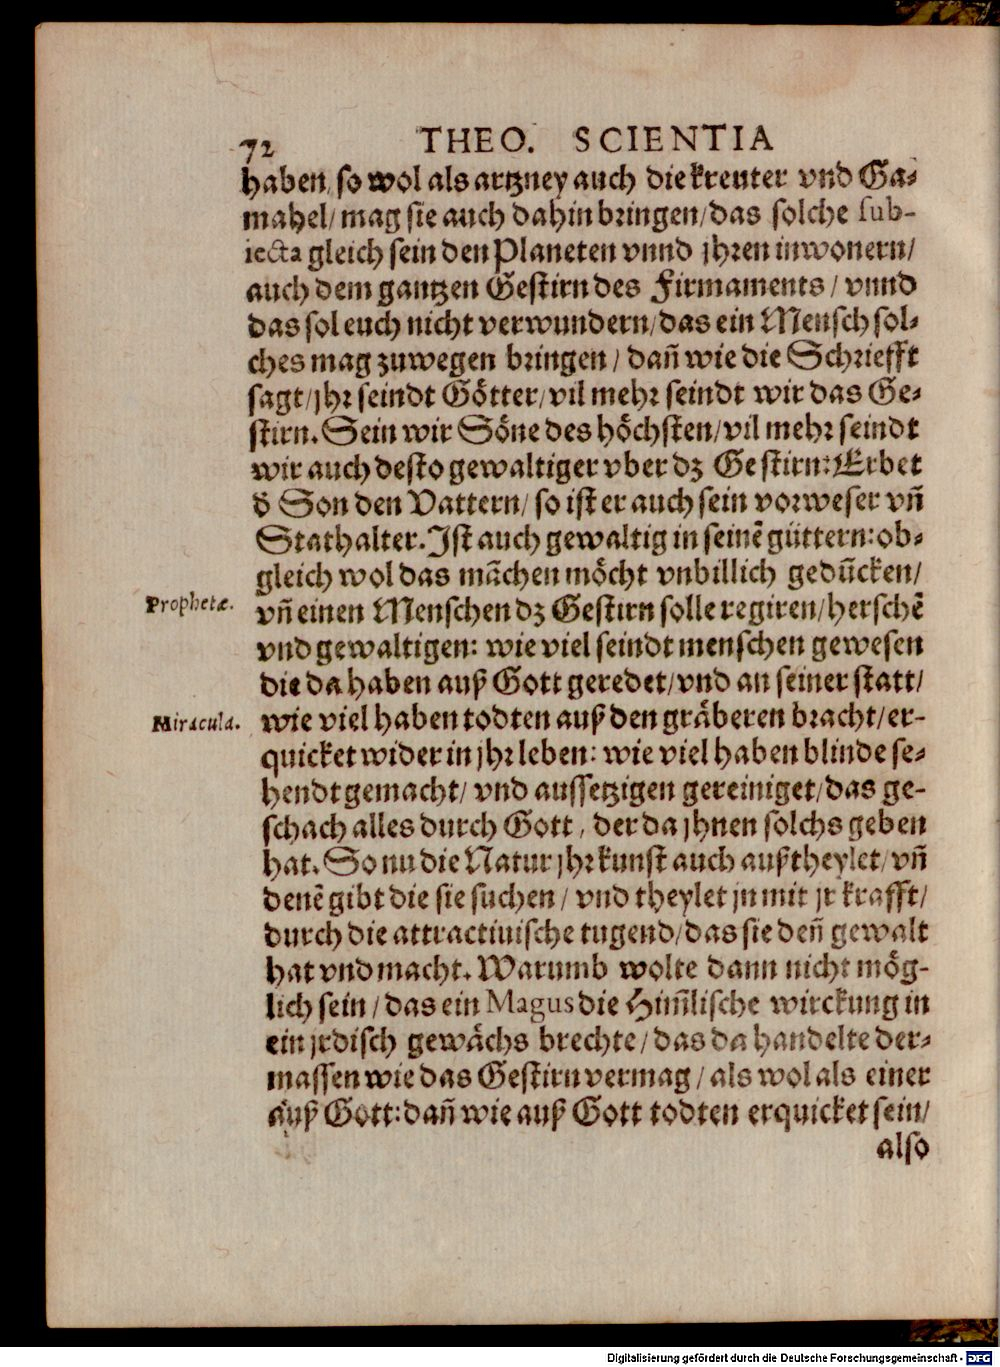 72 THEO. SCIENTIA
haben, so wol als artzney auch die kreuter vnd Ga-
mahel/ mag sie auch dahin bringen/ das solche sub-
iecta gleich sein den Planeten vnnd jhren inwonern/
auch dem gantzen Gestirn des Firmaments / vnnd
das sol euch nicht verwundern/ das ein Mensch sol-
ches mag zuwegen bringen / dañ wie die Schriefft
sagt/ jhr seindt Götter/ vil mehr seindt wir das Ge-
stirn. Sein wir Söne des höchsten/ vil mehr seindt
wir auch desto gewaltiger vber dz Gestirn: Erbet
d̕ Son den Vattern/ so ist er auch sein vorweser vñ
Stathalter. Ist auch gewaltig in seinē güttern: ob-
gleich wol das mãchen möcht vnbillich gedũcken/
Prophetæ.
vñ einen Menschen dz Gestirn solle regiren/ herschē
vnd gewaltigen: wie viel seindt menschen gewesen
die da haben auß Gott geredet/ vnd an seiner statt/
Miracula.
wie viel haben todten auß den gräberen bracht/ er-
quicket wider in jhr leben: wie viel haben blinde se-
hendt gemacht/ vnd aussetzigen gereiniget/ das ge-
schach alles durch Gott, der da jhnen solchs geben
hat. So nu die Natur jhr kunst auch außtheylet/ vñ
denē gibt die sie suchen / vnd theylet jn mit jr krafft/
durch die attractiuische tugend/ das sie deñ gewalt
hat vnd macht. Warumb wolte dann nicht mög-
lich sein / das ein Magus die Him̃lische wirckung in
ein jrdisch gewächs brechte/ das da handelte der-
massen wie das Gestirn vermag / als wol als einer
auß Gott: dañ wie auß Gott todten erquicket sein/
also
Digitalisierung gefördert durch die Deutsche Forschungsgemeinschaft - DFG